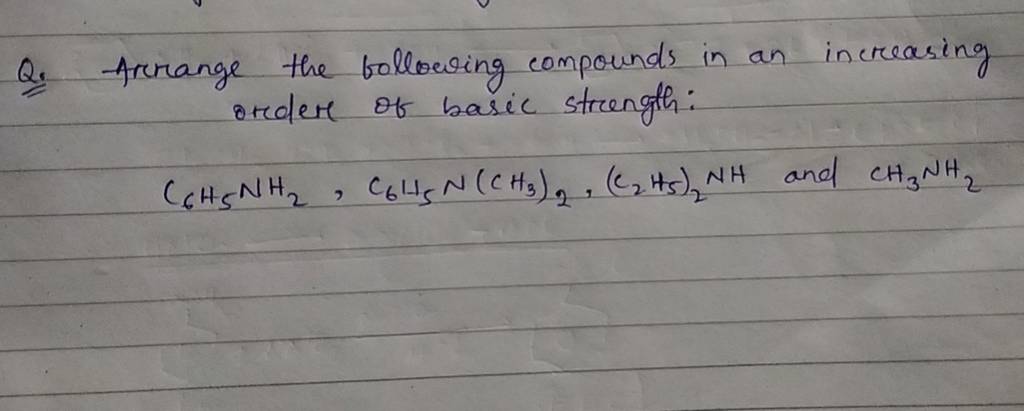 Q. Arrange the following compounds in an increasing
order of basic strength:
C₆H₅NH₂, C₆H₅N(CH₃)₂, (C₂H₅)₂NH and CH₃NH₂